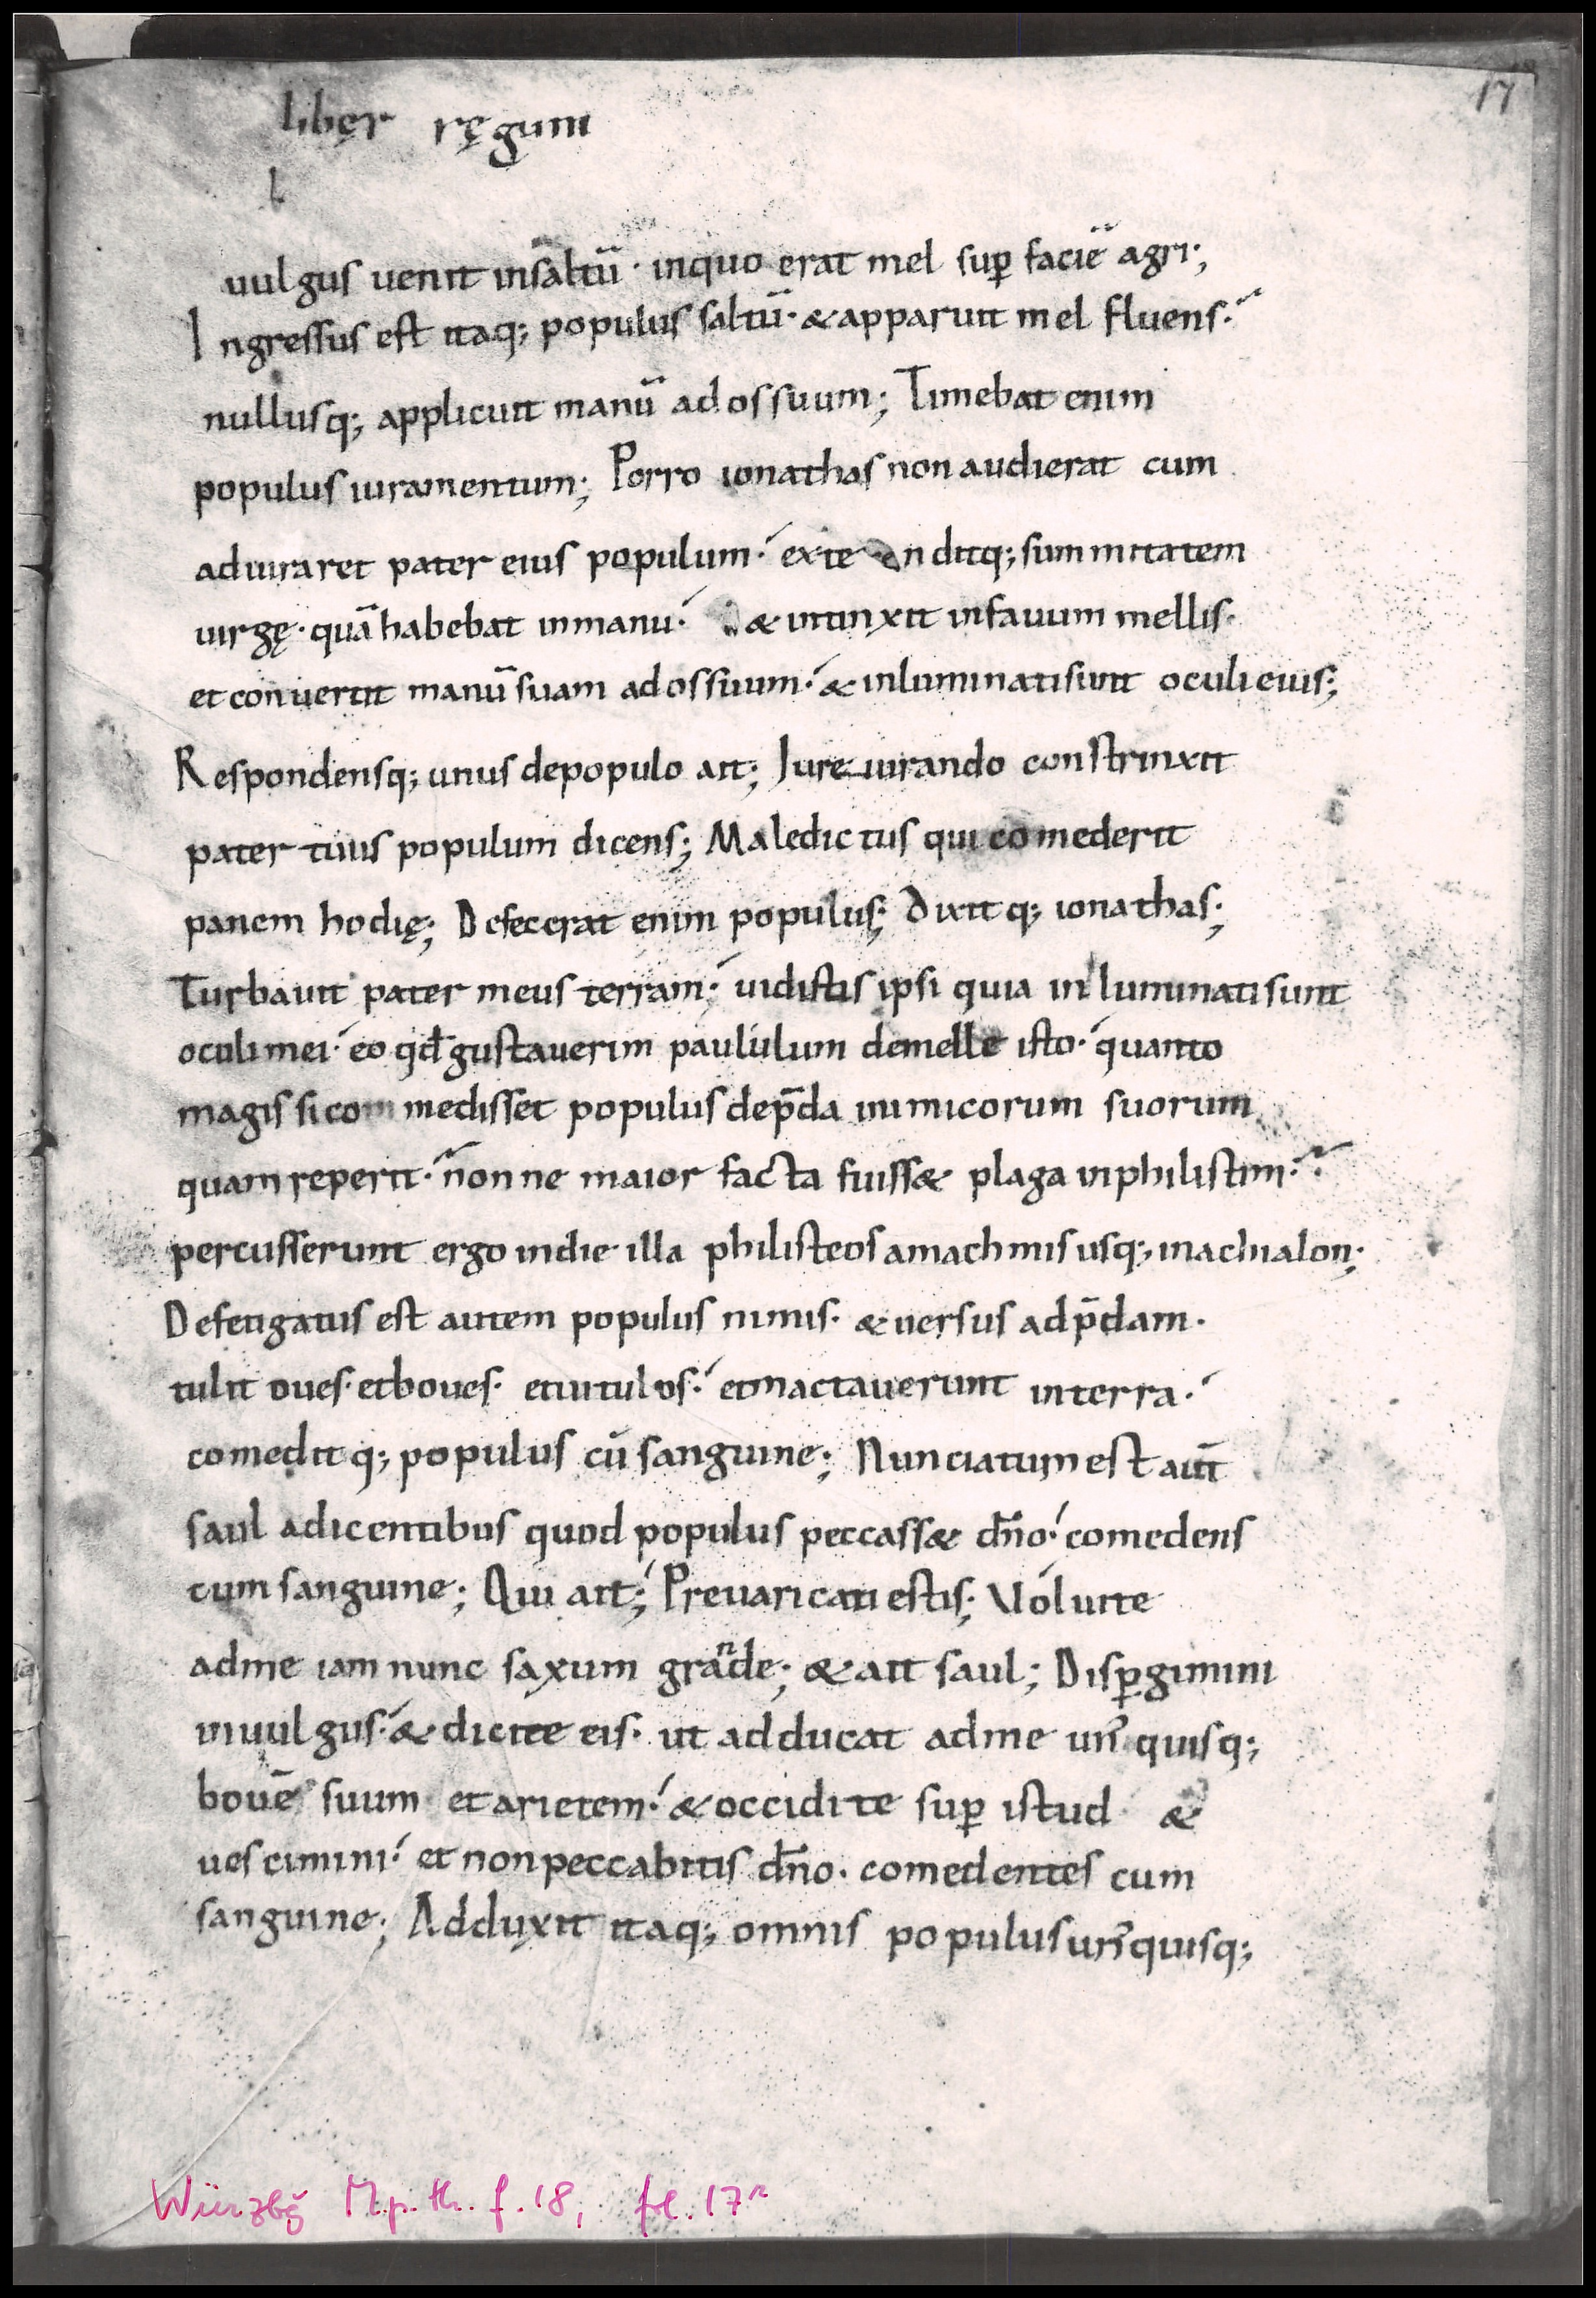 17
libęr ręgum
l
uulgus uenit insaltū · inquo erat mel suꝑ faciē agri·;
Ingressus est itaq; populus saltū· & apparuit mel fluens·
nullusq; applicuit manū ad os suum; Timebat enim
populus iuramentum; Porro ionathas non audierat cum
adiuraret pater eius populum· exte nditq; summitatem
uirgę· quā habebat inmanu· & intinxit infauum mellis·
et conuertit manū suam ad os suum· & inluminati sunt oculi eius;
Respondensq; unus depopulo ait; Iure iurando constrinxit
pater tuus populum dicens; Maledictus qui comederit
panem hodię; Defecerat enim populus; Dixitq; ionathas;
Turbauit pater meus terram· uidistis ipsi quia inluminati sunt
oculi mei· eo qđ gustauerim paululum demelle isto· quanto
magis si commedisset populus dep̄da inimicorum suorum
quam reperit· nonne maior facta fuiss& plaga inphilistim·
percusserunt ergo indie illa philisteos amachmis usq; inachialon;
Defetigatus est autem populus nimis· & uersus adp̄dam·
tulit oues· et boues· et uitulos· et mactauerunt interra·
comeditq; populus cū sanguine; Nunciatum est aut̄
saul adicentibus quod populus peccass& dn̄o· comedens
cum sanguine; Qui ait; Preuaricati estis; Voluite
adme iam nunc saxum grande; & ait saul; Disꝑgimini
inuulgus· & dicite eis· ut adducat adme unꝰ quisq;
bouē suum et arietem· & occidite suꝑ istud &
uescimini· et non peccabitis dn̄o· comedentes cum
sanguine; Adduxit itaq; omnis populus unꝰquisq;
Würzbg M.p.th.f.18, fol. 17r